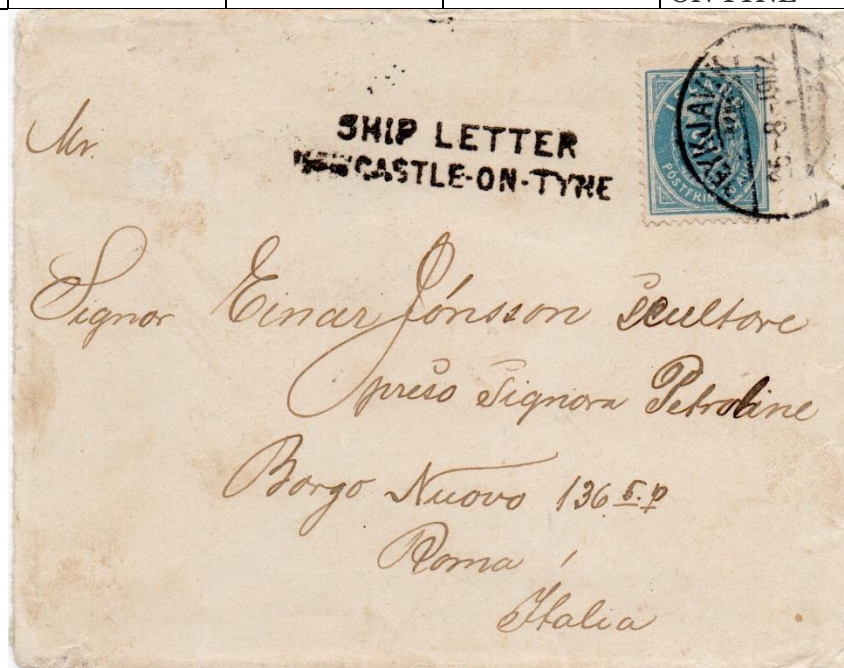 ON-TYNE
SHIP LETTER
NEWCASTLE-ON-TYNE
REYKJAVIK
POSTFRIM
Mr.
Signor Einar Jónsson scultore
preso Signora Petroline
Borgo Nuovo 136 5. p
Roma
Italia